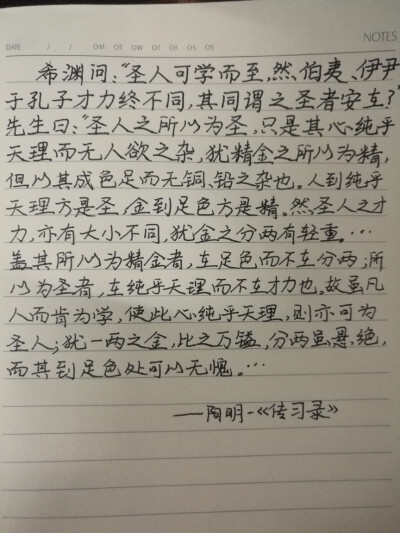 NOTES
DATE / / OM OT OW OT OF OS OS
希渊问:“圣人可学而至,然伯夷、伊尹
于孔子才力终不同,其同谓之圣者安在?”
先生曰:“圣人之所以为圣,只是其心纯乎
天理而无人欲之杂,犹精金之所以为精,
但以其成色足而无铜、铅之杂也。人到纯乎
天理方是圣,金到足色方是精。然圣人之才
力,亦有大小不同,犹金之分两有轻重。…
盖其所以为精金者,在足色而不在分两;所
以为圣者,在纯乎天理而不在才力也,故虽凡
人而肯为学,使此心纯乎天理,则亦可为
圣人;犹一两之金,比之万镒,分两虽悬绝,
而其到足色处可以无愧。…
——阳明-《传习录》